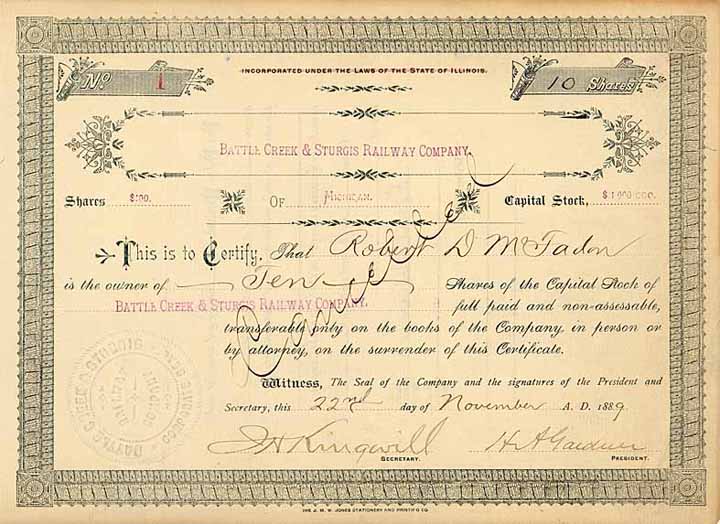 No. 1
INCORPORATED UNDER THE LAWS OF THE STATE OF ILLINOIS.
10 Shares
BATTLE CREEK & STURGIS RAILWAY COMPANY.
Shares $100. OF MICHIGAN. Capital Stock, $1,000,000.
This is to Certify, That Robert D McFadon
is the owner of Ten Shares of the Capital Stock of
BATTLE CREEK & STURGIS RAILWAY COMPANY. full paid and non-assessable,
transferable only on the books of the Company, in person or
by attorney, on the surrender of this Certificate.
Cancelled
Witness, The Seal of the Company and the signatures of the President and
Secretary, this 22nd day of November A. D. 1889
H A Gardner
SECRETARY. PRESIDENT.
THE J. M. W. JONES STATIONERY AND PRINTING CO.